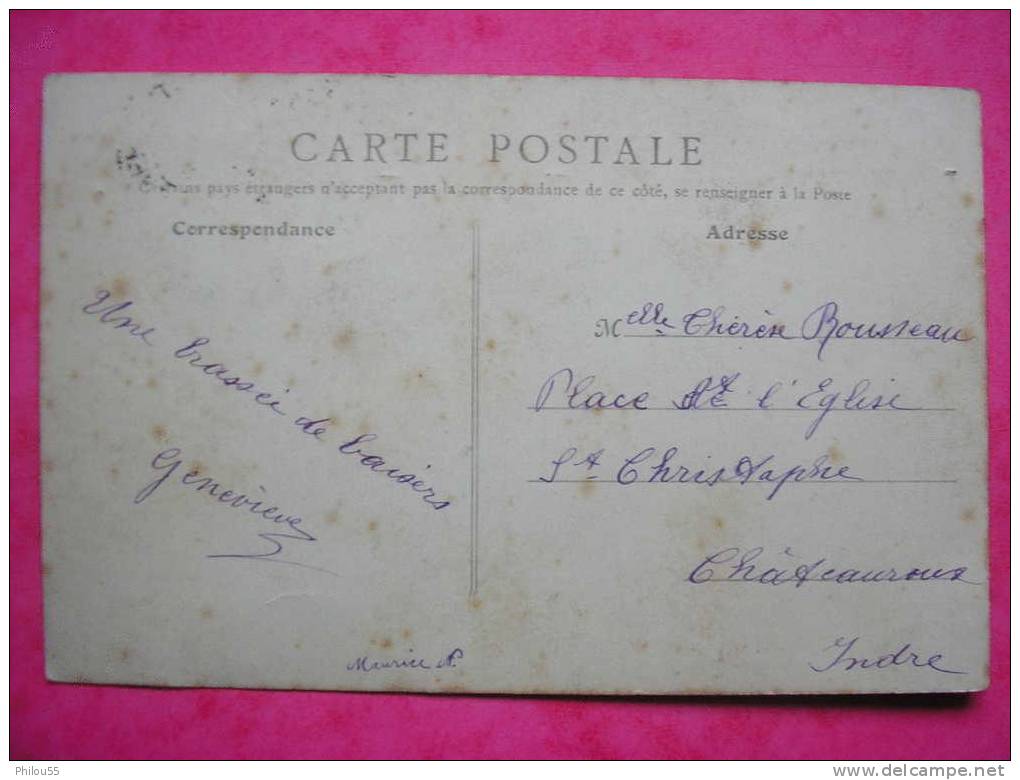 CARTE POSTALE
Certains pays étrangers n'acceptant pas la correspondance de ce côté, se renseigner à la Poste
Correspondance
Adresse
Une brassée de baisers
Geneviève
Maurice
Melle Thérèse Rousseau
Place de l'Eglise
St Christophe
Châteauroux
Indre
Philou55
http://www.delcampe.net